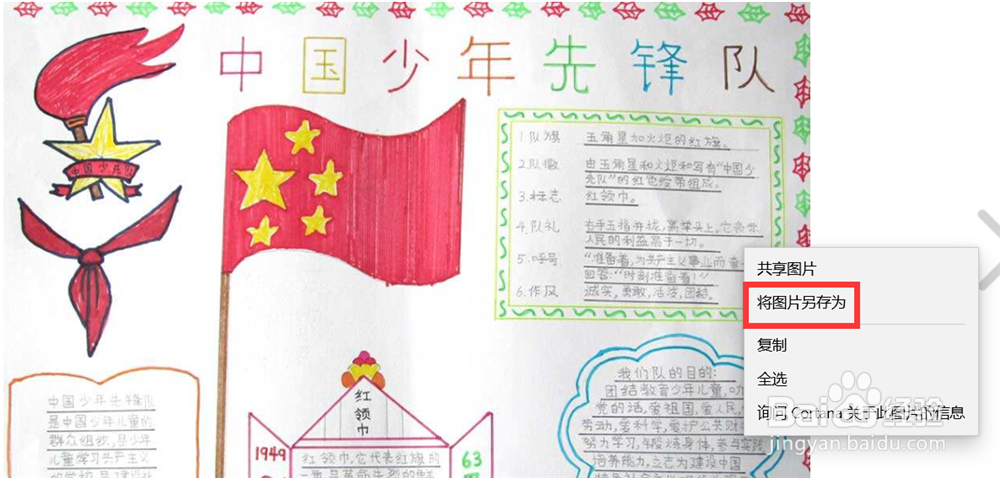 中国少年先锋队
中国少年队
1.队旗 五角星加火炬的红旗。
2.队徽 由五角星和火炬和写有"中国少
先队"的红色绶带组成。
3.标志 红领巾。
4.队礼 右手五指并拢,高举头上。它表示
人民的利益高于一切。
5.呼号 "准备着,为共产主义事业而奋
回答:"时刻准备着!"
6.作风 诚实,勇敢,活泼,团结。
共享图片
将图片另存为
复制
全选
询问 Cortana 关于此图片的信息
我们队的目的:
团结教育少年儿童,
党的话,爱祖国,爱人民,
劳动,爱科学,爱护公共财
努力学习,锻炼身体,参与实践
培养能力,立志为建设中国
中国少年先锋队
是中国少年儿童的
群众组织,是少年
儿童学习共产主义
的学校,是建设社
红领巾
1949
红领巾,它代表红旗的
63
Baidu经验
jingyan.baidu.com